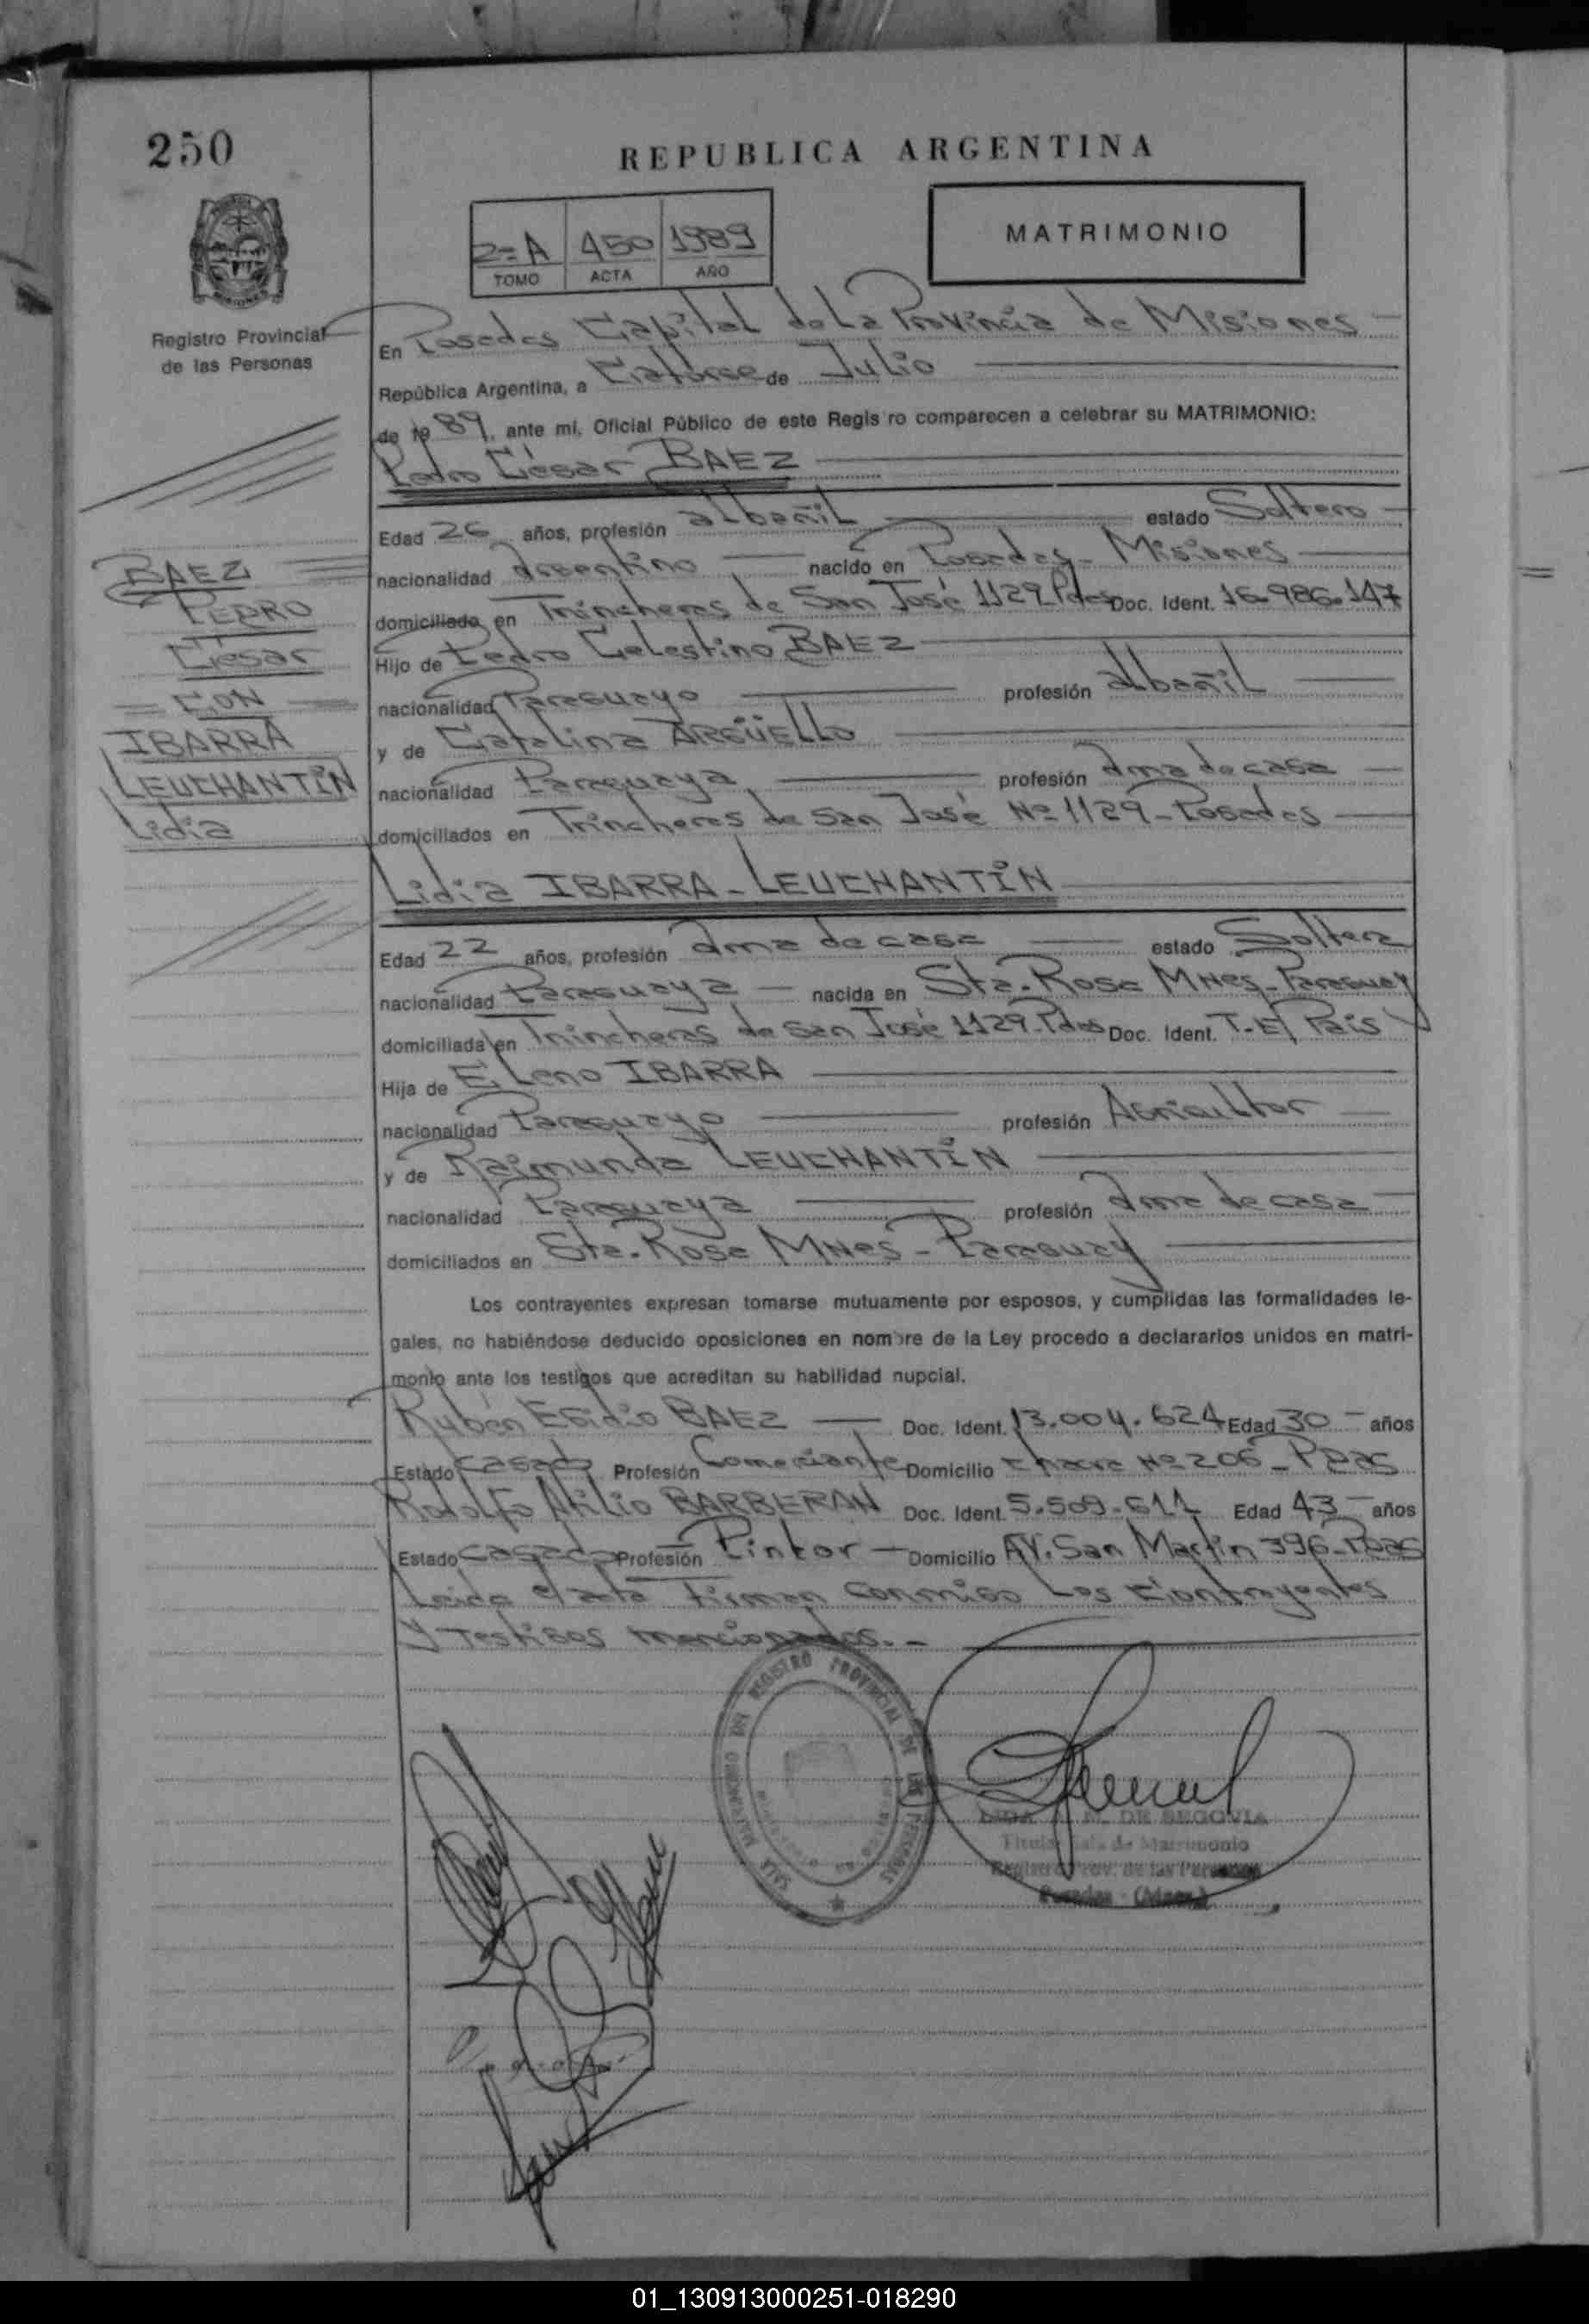 250
REPUBLICA ARGENTINA
2=A 450 1989
TOMO ACTA AÑO
MATRIMONIO
Registro Provincial
de las Personas
En Posadas Capital de La Provincia de Misiones
República Argentina, a Catorce de Julio
de 1989, ante mí, Oficial Público de este Regis ro comparecen a celebrar su MATRIMONIO:
Pedro César BAEZ
Edad 26 años, profesión albañil estado Soltero
nacionalidad argentino nacido en Posadas - Misiones
domiciliado en Trincheras de San José 1129 Pdas Doc. Ident. 16.986.147
Hijo de Pedro Celestino BAEZ
nacionalidad Paraguayo profesión albañil
y de Catalina ARGÜELLO
nacionalidad Paraguaya profesión ama de casa
domiciliados en Trincheras de San José Nº 1129 - Posadas
BAEZ
PEDRO
César
= CON =
IBARRA
LEUCHANTIN
Lidia
Lidia IBARRA - LEUCHANTIN
Edad 22 años, profesión ama de casa estado Soltera
nacionalidad Paraguaya nacida en Sta. Rosa Mnes - Paraguay
domiciliada en Trincheras de San José 1129 Pdas Doc. Ident. T. El País
Hija de Eleno IBARRA
nacionalidad Paraguayo profesión Agricultor
y de Raimunda LEUCHANTIN
nacionalidad Paraguaya profesión ama de casa
domiciliados en Sta. Rosa Mnes - Paraguay
Los contrayentes expresan tomarse mutuamente por esposos, y cumplidas las formalidades le-
gales, no habiéndose deducido oposiciones en nombre de la Ley procedo a declararlos unidos en matri-
monio ante los testigos que acreditan su habilidad nupcial.
Rubén Egidio BAEZ Doc. Ident. 13.004.624 Edad 30 años
Estado casado Profesión Comerciante Domicilio chacra Nº 206 - Pdas
Rodolfo Atilio BARBERAN Doc. Ident. 5.509.611 Edad 43 años
Estado casado Profesión Pintor Domicilio AV. San Martín 396 - Pdas
Leída el acta Firman conmigo Los Contrayentes
y testigos mencionados.-
REGISTRO PROVINCIAL DE LAS PERSONAS
SALA MATRIMONIO
DE SEGOVIA
Titular Sala de Matrimonio
Registro Prov. de las Personas
Posadas - (Mnes.)
01_130913000251-018290